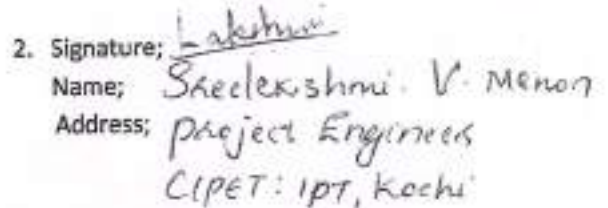 2. Signature; Lakshmi
Name; Sreelekshmi. V. Menon
Address; Project Engineer
CIPET: IPT, Kochi